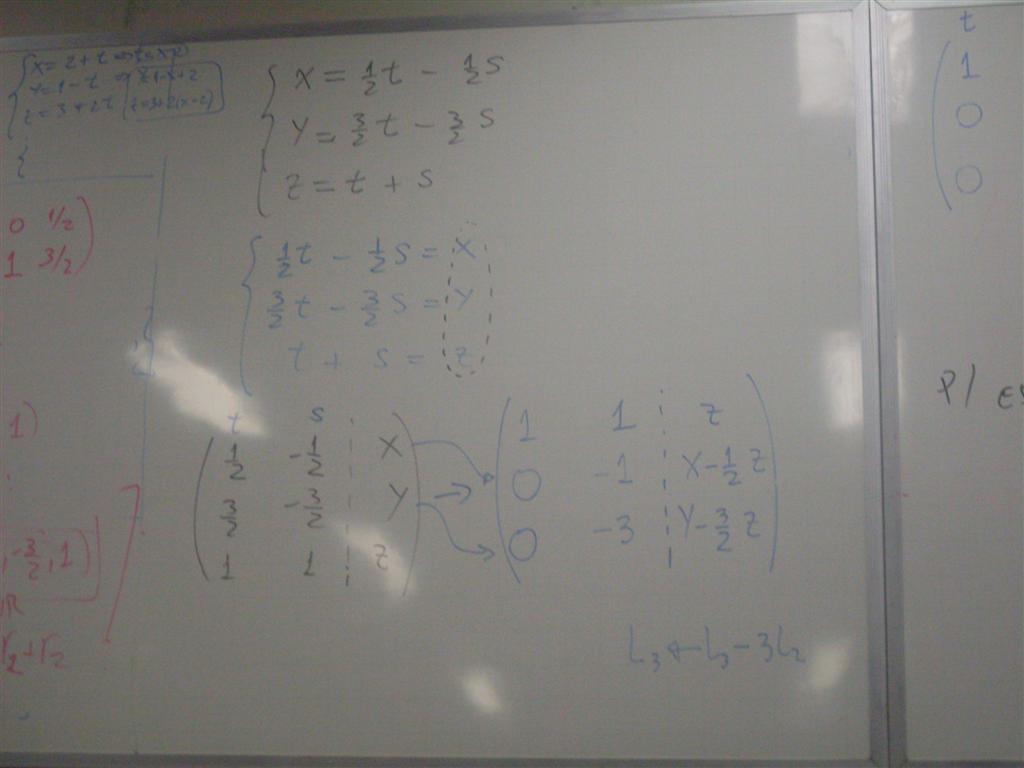 X = 2 + t
Y = 1 - t
Z = 3 + 2t
0 1/2
1 3/2
1)
, -3/2, 1)
r₂ + r₂
X = 1/2 t - 1/2 S
Y = 3/2 t - 3/2 S
Z = t + S
1/2 t - 1/2 S = X
3/2 t - 3/2 S = Y
t + S = Z
t S
1/2 -1/2 X
3/2 -3/2 Y
1 1 Z
→
1 1 Z
0 -1 X - 1/2 Z
0 -3 Y - 3/2 Z
L₃ ← L₃ - 3L₂
t
1
0
0
P/ es